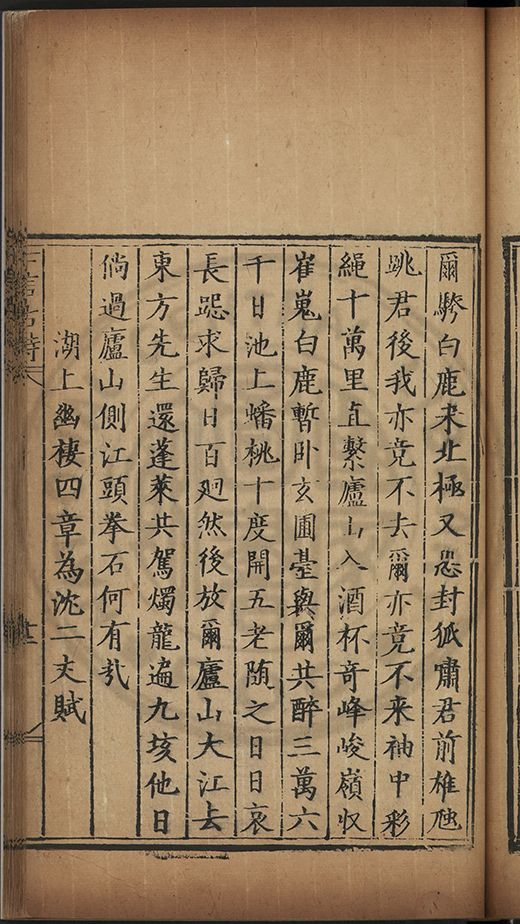 爾驂白鹿来北極又恐封狐嘯君前雄虺
跳君後我亦竟不去爾亦竟不来袖中彩
繩十萬里直繫廬山入酒杯奇峰峻嶺収
崔嵬白鹿暫卧玄圃臺與爾共醉三萬六
千日池上蟠桃十度開五老随之日日哀
長跽求歸日百廻然後放爾廬山大江去
東方先生還蓬萊共駕燭龍遍九垓他日
倘過廬山側江頭拳石何有㢤
湖上幽棲四章為沈二丈賦
七言古詩